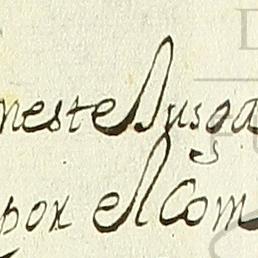 neste Jusga
por el Com